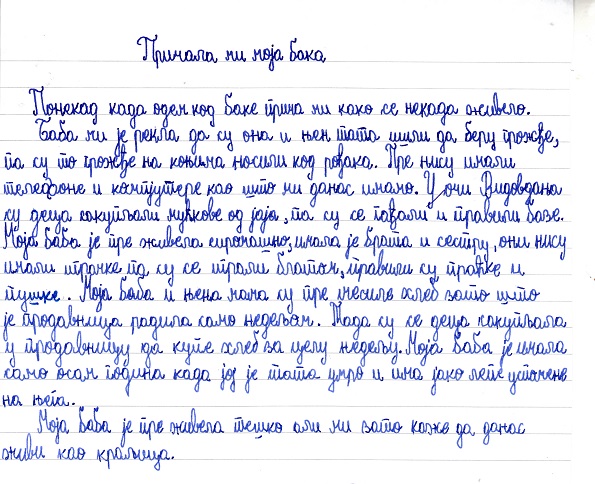 Причала ми моја бака
Понекад када одем код баке прича ми како се некада живело.
Баба ми је рекла да су она и њен тата ишли да беру грожђе,
па су то грожђе на коњима носили код рођака. Пре нису имали
телефоне и компјутере као што ми данас имамо. У очи Видовдана
су деца сакупљали љускове од јаја, па су се
Моја баба је пре живела сиромашно, имала је брата и сестру, они нису
имали играчке па су се играли блатом, правили су праћке и
пушке. Моја баба и њена мама су пре месиле хлеб зато што
је продавница радила само недељом. Тада су се деца сакупљала
у продавницу да купе хлеб за целу недељу. Моја баба је имала
само осам година када јој је тата умро и има јако лепе успомене
на њега.
Моја баба је пре живела тешко али ми зато каже да данас
живи као краљица.